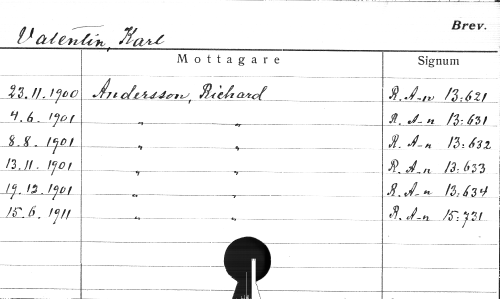 Brev.
Valentin, Karl
Mottagare Signum
23.11.1900 Andersson, Richard R. A-n 13:621
4.6.1901 „ „ R. A-n 13:631
8.8.1901 „ „ R. A-n 13:632
13.11.1901 „ „ R. A-n 13:633
19.12.1901 „ „ R. A-n 13:634
15.6.1911 „ „ R. A-n 15:731